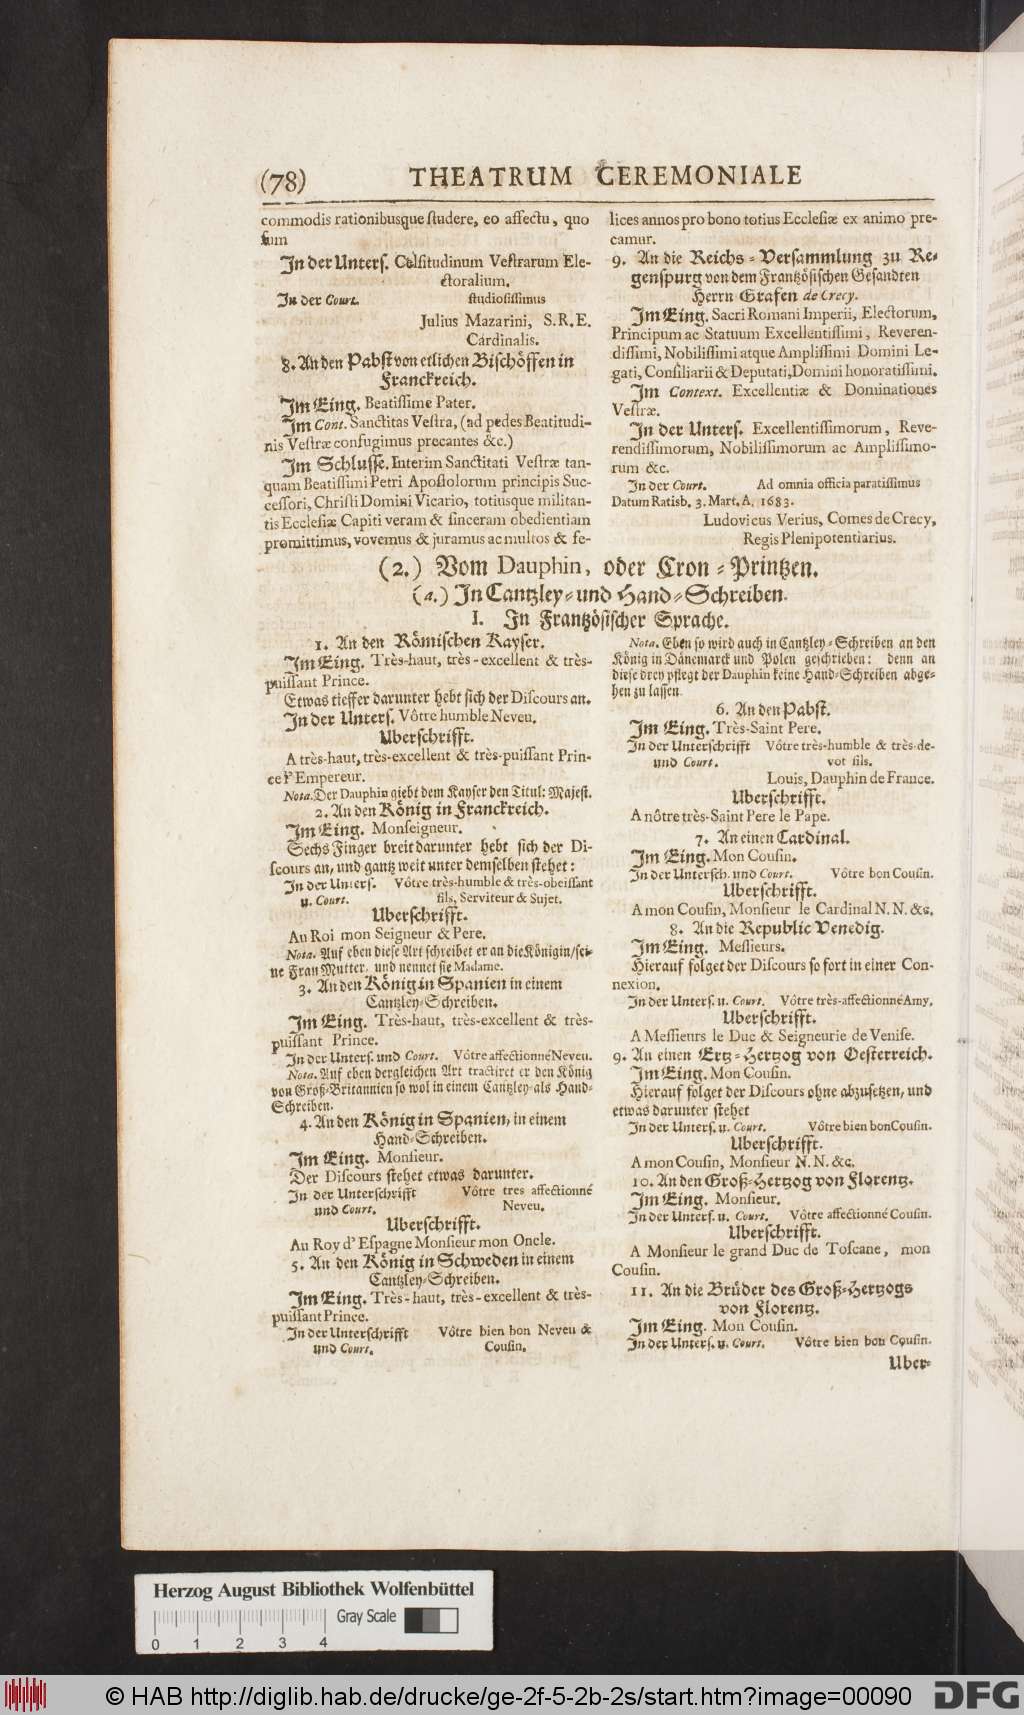 (78) THEATRUM CEREMONIALE
commodis rationibusque studere, eo affectu, quo
sum
In der Unters. Celsitudinum Vestrarum Ele-
ctoralium.
In der Court. studiosissimus
Julius Mazarini, S.R.E.
Cardinalis.
8. An den Pabst von etlichen Bischöffen in
Franckreich.
Im Eing. Beatissime Pater.
Im Cont. Sanctitas Vestra, (ad pedes Beatitudi-
nis Vestræ confugimus precantes &c.)
Im Schlusse. Interim Sanctitati Vestræ tan-
quam Beatissimi Petri Apostolorum principis Suc-
cessori, Christi Domini Vicario, totiusque militan-
tis Ecclesiæ Capiti veram & sinceram obedientiam
promittimus, vovemus & juramus ac multos & fe-
lices annos pro bono totius Ecclesiæ ex animo pre-
camur.
9. An die Reichs-Versammlung zu Re-
genspurg von dem Frantzösischen Gesandten
Herrn Grafen de Crecy.
Im Eing. Sacri Romani Imperii, Electorum,
Principum ac Statuum Excellentissimi, Reveren-
dissimi, Nobilissimi atque Amplissimi Domini Le-
gati, Consiliarii & Deputati, Domini honoratissimi.
Im Context. Excellentiæ & Dominationes
Vestræ.
In der Unters. Excellentissimorum, Reve-
rendissimorum, Nobilissimorum ac Amplissimo-
rum &c.
In der Court. Ad omnia officia paratissimus
Datum Ratisb. 3. Mart. A. 1683.
Ludovicus Verius, Comes de Crecy,
Regis Plenipotentiarius.
(2.) Vom Dauphin, oder Cron-Printzen.
(a.) In Cantzley- und Hand-Schreiben.
I. In Frantzösischer Sprache.
1. An den Römischen Kayser.
Im Eing. Très-haut, très-excellent & très-
puissant Prince.
Etwas tieffer darunter hebt sich der Discours an.
In der Unters. Vôtre humble Neveu.
Uberschrifft.
A très-haut, très-excellent & très-puissant Prin-
ce l' Empereur.
Nota. Der Dauphin giebt dem Kayser den Titul: Majest.
2. An den König in Franckreich.
Im Eing. Monseigneur.
Sechs Finger breit darunter hebt sich der Di-
scours an, und gantz weit unter demselben stehet:
In der Unters. Vôtre très-humble & très-obeissant
u. Court. fils, Serviteur & Sujet.
Uberschrifft.
Au Roi mon Seigneur & Pere.
Nota. Auf eben diese Art schreibet er an die Königin/sei-
ne Frau Mutter, und nennet sie Madame.
3. An den König in Spanien in einem
Cantzley-Schreiben.
Im Eing. Très-haut, très-excellent & très-
puissant Prince.
In der Unters. und Court. Vôtre affectionné Neveu.
Nota. Auf eben dergleichen Art tractiret er den König
von Groß-Britannien so wol in einem Cantzley- als Hand-
Schreiben.
4. An den König in Spanien, in einem
Hand-Schreiben.
Im Eing. Monsieur.
Der Discours stehet etwas darunter.
In der Unterschrifft Vôtre tres affectionné
und Court. Neveu.
Uberschrifft.
Au Roy d' Espagne Monsieur mon Oncle.
5. An den König in Schweden in einem
Cantzley-Schreiben.
Im Eing. Très-haut, très-excellent & très-
puissant Prince.
In der Unterschrifft Vôtre bien bon Neveu &
und Court. Cousin.
Nota. Eben so wird auch in Cantzley-Schreiben an den
König in Dänemarck und Polen geschrieben: denn an
diese drey pflegt der Dauphin keine Hand-Schreiben abge-
hen zu lassen.
6. An den Pabst.
Im Eing. Très-Saint Pere.
In der Unterschrifft Vôtre très-humble & très-de-
und Court. vot fils.
Louis, Dauphin de France.
Uberschrifft.
A nôtre très-Saint Pere le Pape.
7. An einen Cardinal.
Im Eing. Mon Cousin.
In der Untersch. und Court. Vôtre bon Cousin.
Uberschrifft.
A mon Cousin, Monsieur le Cardinal N. N. &c.
8. An die Republic Venedig.
Im Eing. Messieurs.
Hierauf folget der Discours so fort in einer Con-
nexion.
In der Unters. u. Court. Vôtre très-affectionné Amy.
Uberschrifft.
A Messieurs le Duc & Seigneurie de Venise.
9. An einen Ertz-Hertzog von Oesterreich.
Im Eing. Mon Cousin.
Hierauf folget der Discours ohne abzusetzen, und
etwas darunter stehet
In der Unters. u. Court. Vôtre bien bon Cousin.
Uberschrifft.
A mon Cousin, Monsieur N. N. &c.
10. An den Groß-Hertzog von Florentz.
Im Eing. Monsieur.
In der Unters. u. Court. Vôtre affectionné Cousin.
Uberschrifft.
A Monsieur le grand Duc de Toscane, mon
Cousin.
11. An die Brüder des Groß-Hertzogs
von Florentz.
Im Eing. Mon Cousin.
In der Unters. u. Court. Vôtre bien bon Cousin.
Uber-
Herzog August Bibliothek Wolfenbüttel
Gray Scale
0 1 2 3 4
© HAB http://diglib.hab.de/drucke/ge-2f-5-2b-2s/start.htm?image=00090
DFG